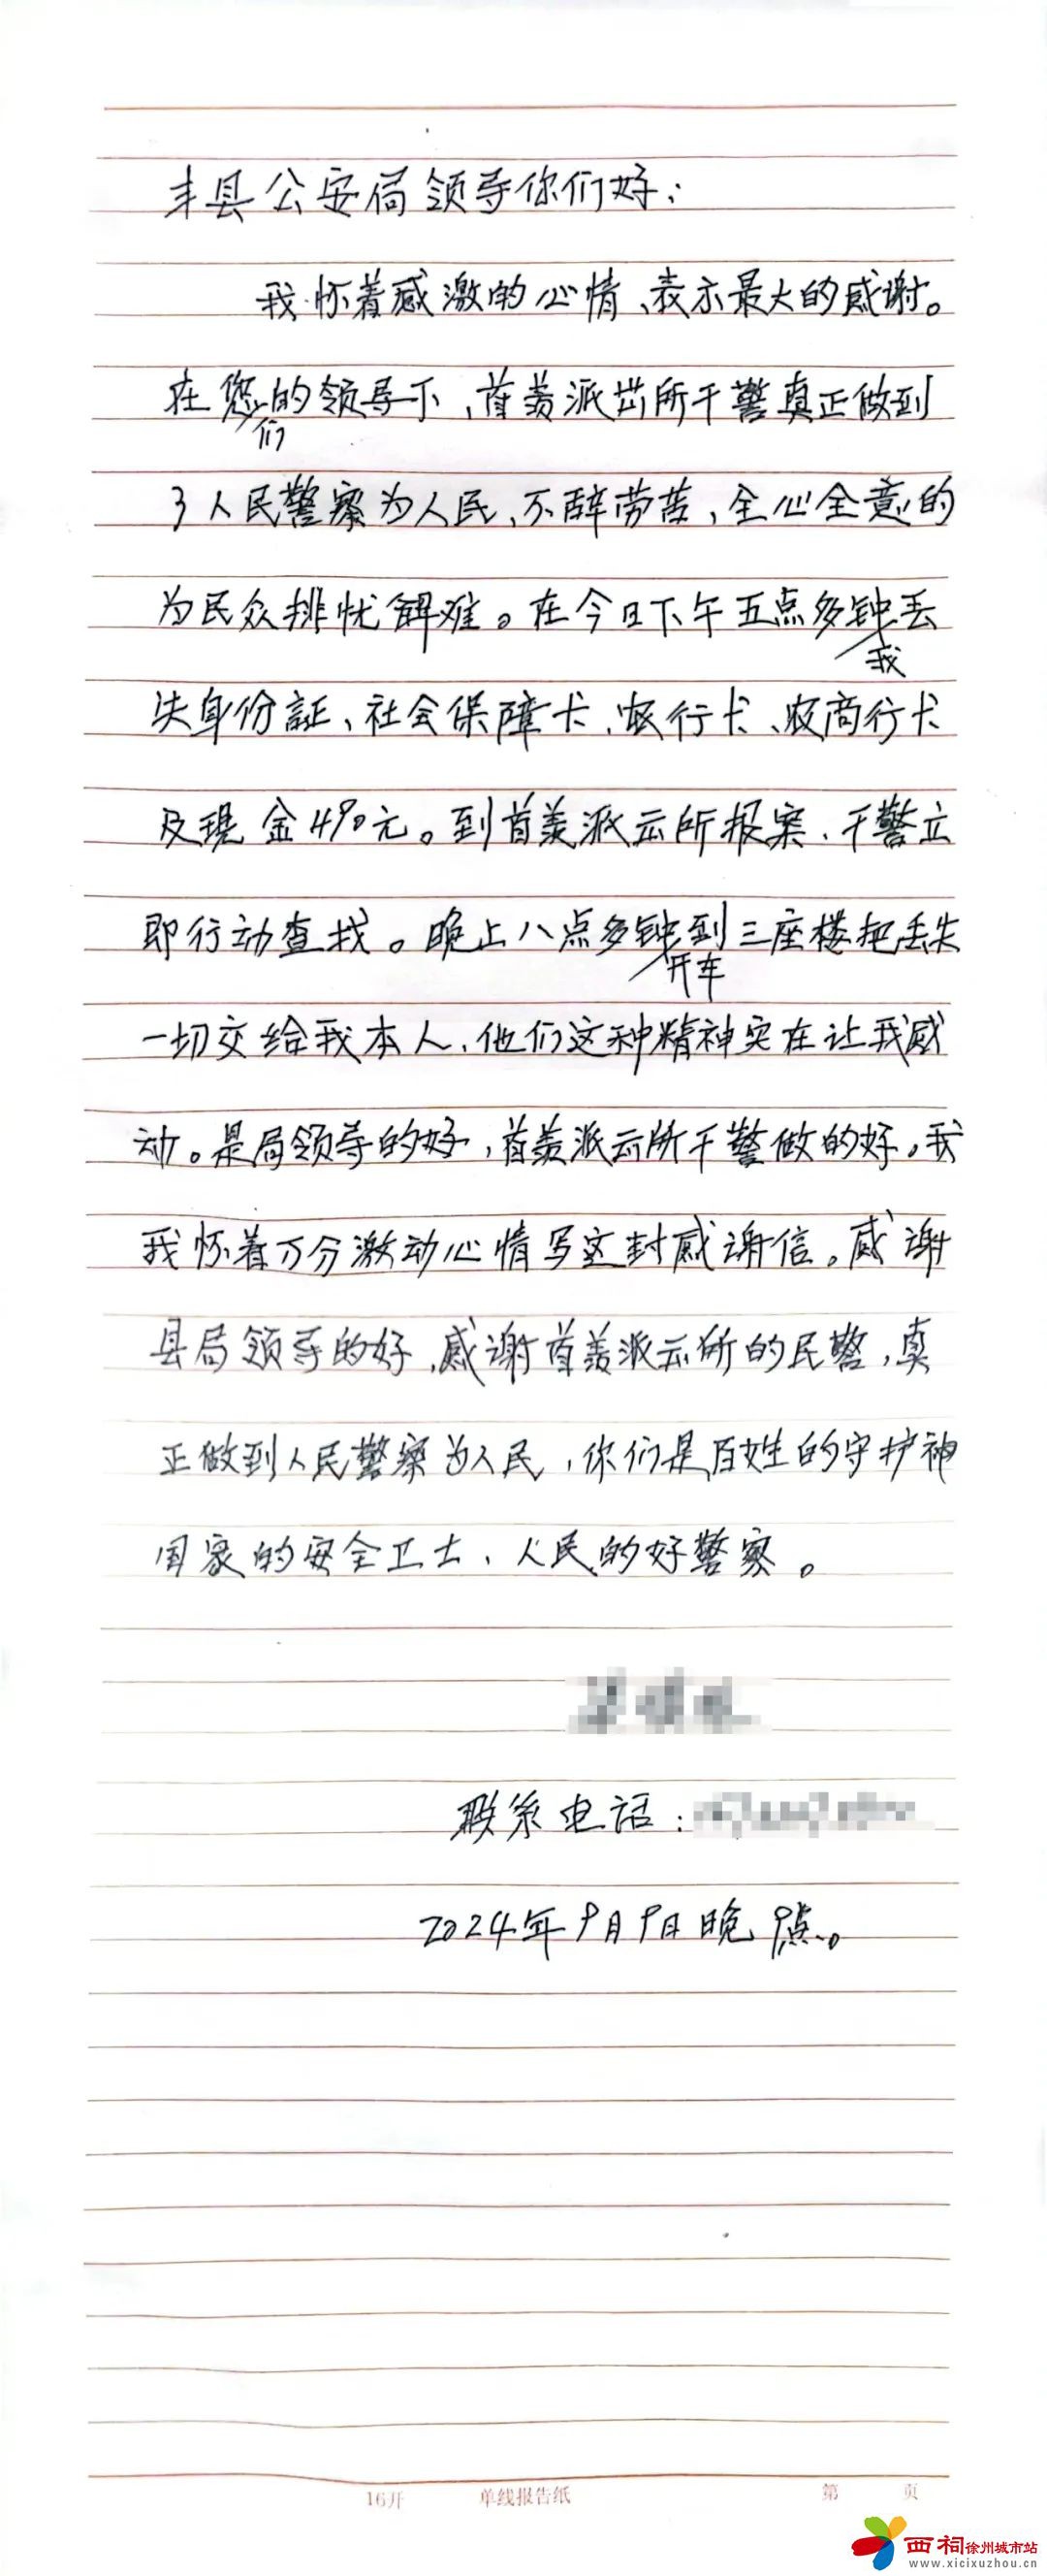 丰县公安局领导你们好：
我怀着感激的心情、表示最大的感谢。
在您们的领导下，首羡派出所干警真正做到
了人民警察为人民、不辞劳苦，全心全意的
为民众排忧解难。在今日下午五点多钟我丢
失身份証、社会保障卡、农行卡、农商行卡
及现金490元。到首羡派出所报案、干警立
即行动查找。晚上八点多钟开车到三座楼把丢失
一切交给我本人、他们这种精神实在让我感
动。是局领导的好，首羡派出所干警做的好。我
我怀着万分激动心情写这封感谢信。感谢
县局领导的好、感谢首羡派出所的民警，真
正做到人民警察为人民，你们是百姓的守护神
国家的安全卫士、人民的好警察。
联系电话：
2024年9月9日晚9点。
16开 单线报告纸 第 页
西祠徐州城市站
www.xicixuzhou.cn